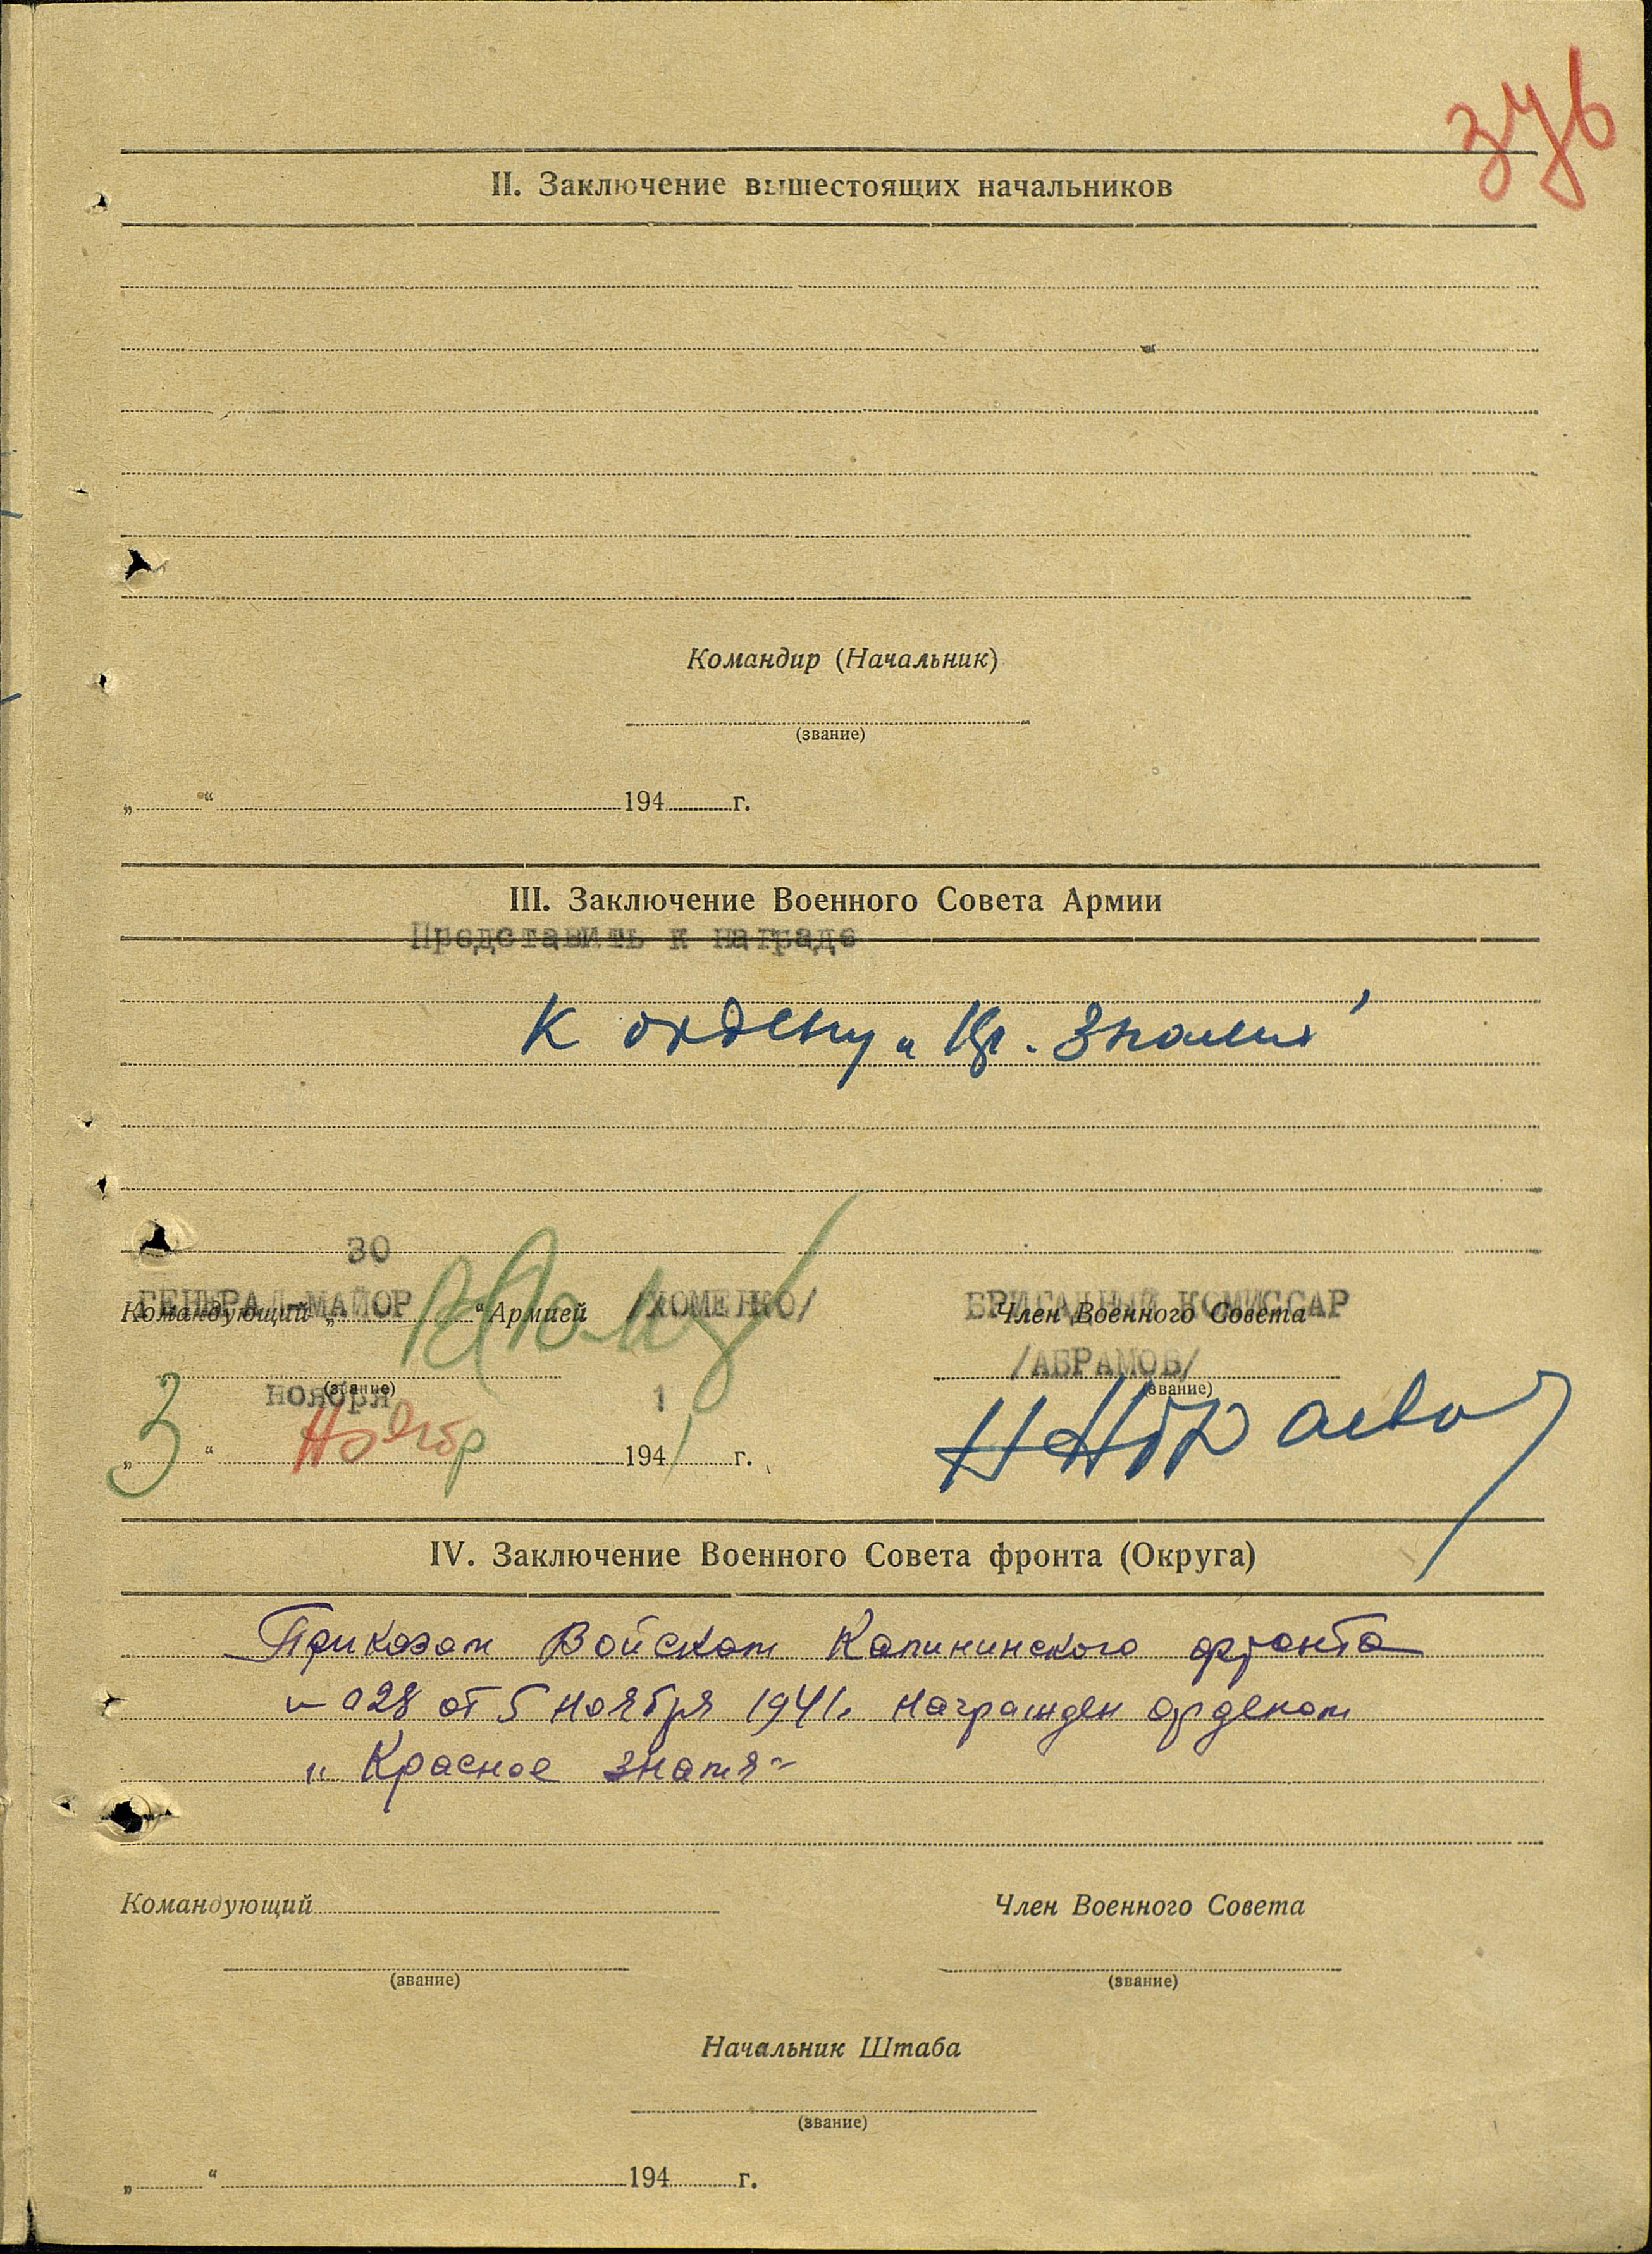 376
II. Заключение вышестоящих начальников
Командир (Начальник)
(звание)
„ “ 194 г.
III. Заключение Военного Совета Армии
Представить к награде
к ордену „Кр. Знамя"
30
ГЕНЕРАЛ-МАЙОР /ХОМЕНКО/ БРИГАДНЫЙ КОМИССАР
Командующий „ “ Армией Член Военного Совета
/АБРАМОВ/
(звание) (звание)
ноября 1
„3“ Ноябр 1941 г.
IV. Заключение Военного Совета фронта (Округа)
Приказом Войскам Калининского фронта
028 от 5 ноября 1941г. награжден орденом
„Красное знамя"
Командующий Член Военного Совета
(звание) (звание)
Начальник Штаба
(звание)
„ “ 194 г.